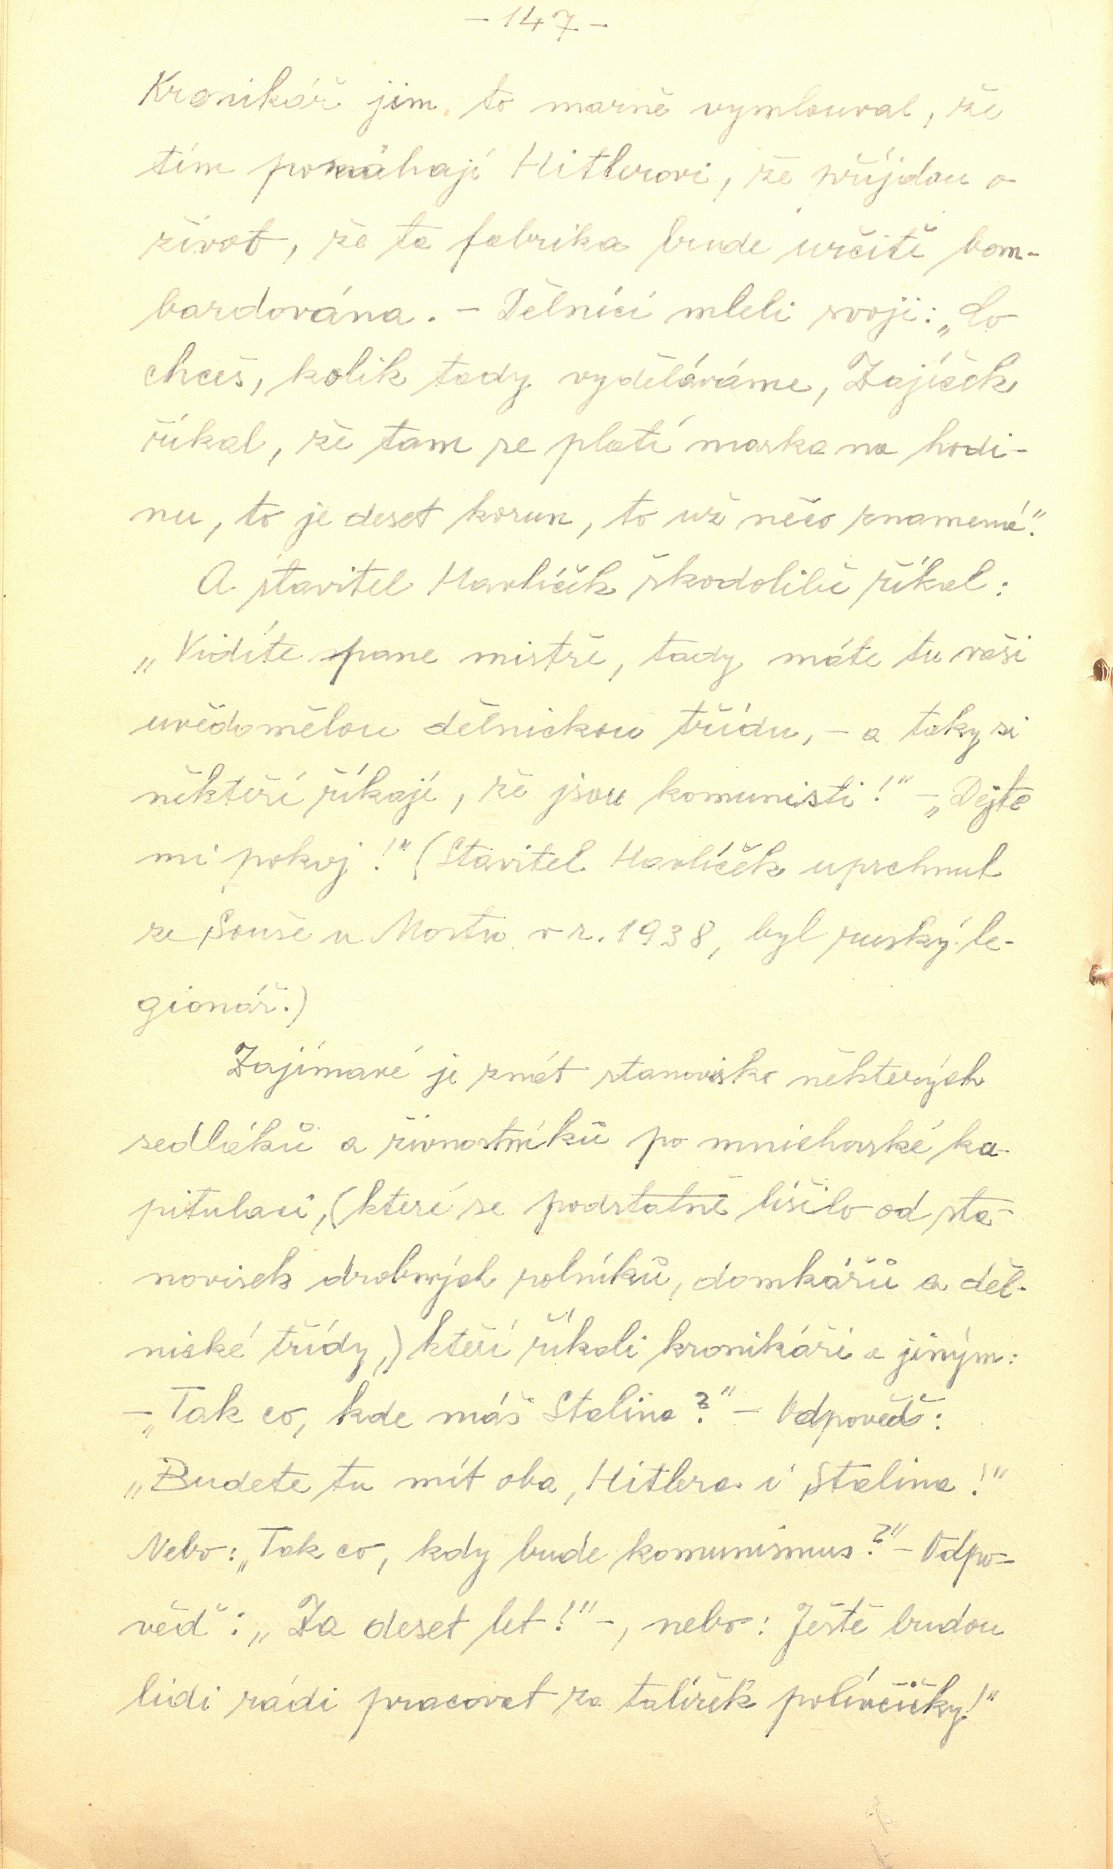 - 147 -
Kronikář jim to marně vymlouval, že
tím pomáhají Hitlerovi, že přijdou o
život, že ta fabrika bude určitě bom-
bardována. - Dělníci mleli svoji: „Co
chceš, kolik tady vyděláváme, Zajíček
říkal, že tam se platí marka na hodi-
nu, to je deset korun, to už něco znamená".
A stavitel Havlíček škodolibě říkal:
„Vidíte pane mistře, tady máte tu vaši
uvědomělou dělnickou třídu, - a taky si
někteří říkají, že jsou komunisti!" - „Dejte
mi pokoj!" (Stavitel Havlíček uprchnul
ze Souše u Mostu v r. 1938, byl ruský le-
gionář.)
Zajímavé je znát stanovisko některých
sedláků a živnostníků po mnichovské ka-
pitulaci, (které se podstatně lišilo od sta-
novisek drobných rolníků, domkářů a děl-
nické třídy,) kteří říkali kronikáři a jiným:
- „Tak co, kde máš Stalina?" - Odpověď:
„Budete tu mít oba, Hitlera i Stalina!"
Nebo: „Tak co, kdy bude komunismus?" - Odpo-
věď: „Za deset let!" -, nebo: Ještě budou
lidi rádi pracovat za talířek polívčičky!"